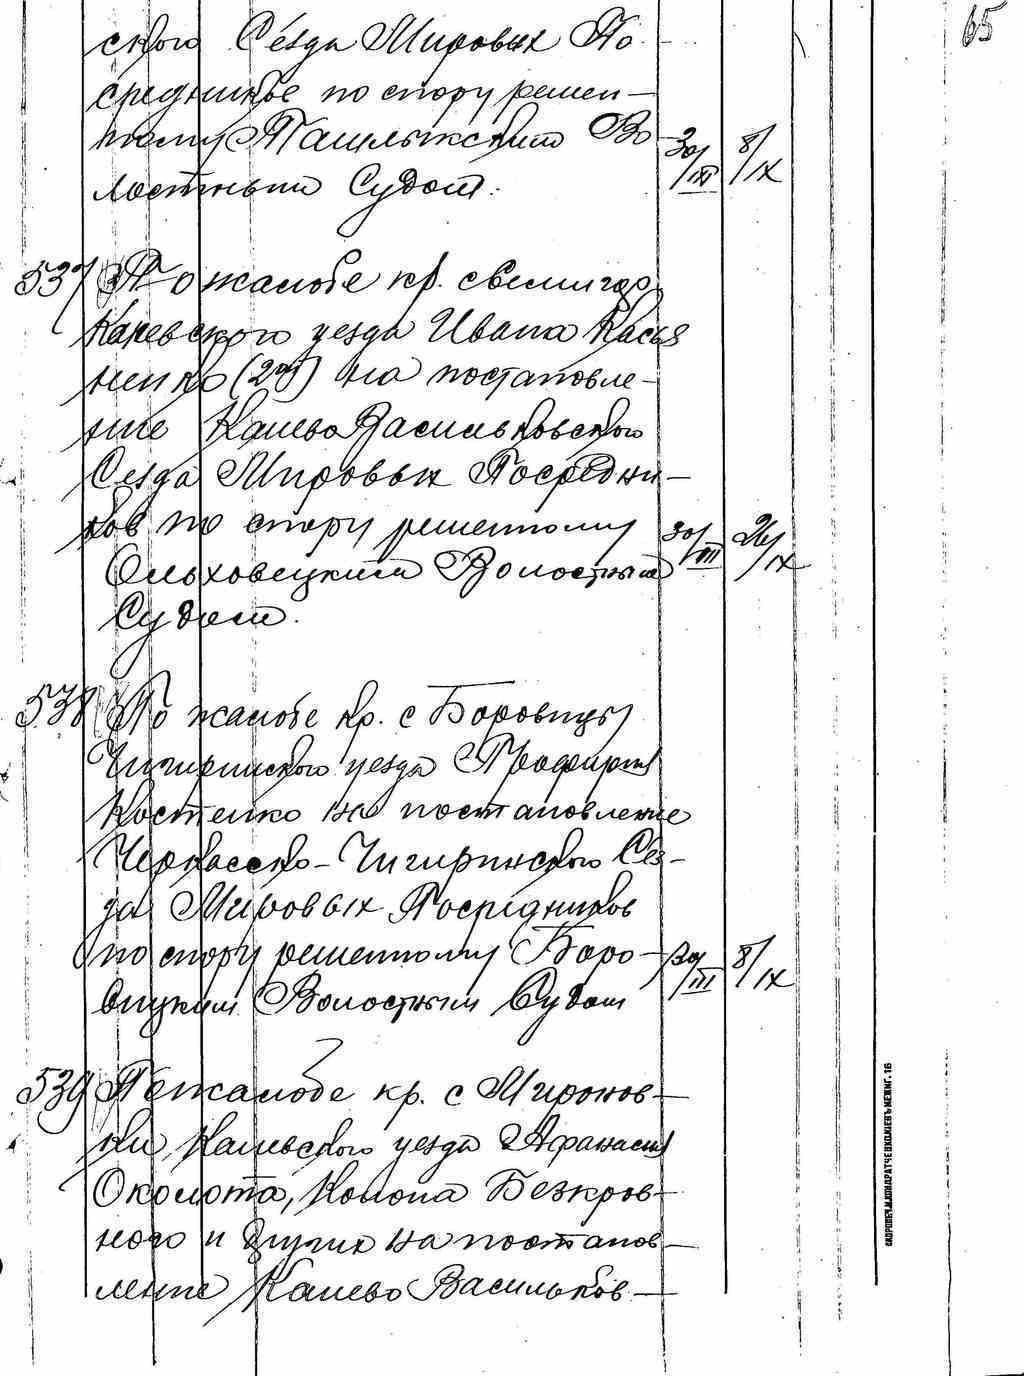 65
ского Сезда Мировых По-
средников по спору решен-
ному Ташлыкским Во-
лостным Судом.
30/III 8/IX
537 По жалобе кр. с
Каневского уезда Ивана Касья
ненко (2го) на постановле-
ние Канево Васильковского
Сезда Мировых Посредни-
ков по спору решенному
30/III 26/IX
Ольховецким Волостным
Судом.
538 По жалобе кр. с Боровицы
Чигиринского уезда Профирия
Костенко на постановление
Черкасско-Чигиринского Сез-
да Мировых Посредников
по спору решенному Боро-
30/III 8/IX
вицким Волостным Судом
539 По жалобе кр. с Миронов-
ки Каневского уезда Афанасия
Околота, Конона Безкров-
ного и других на постанов-
ление Канево Васильков-